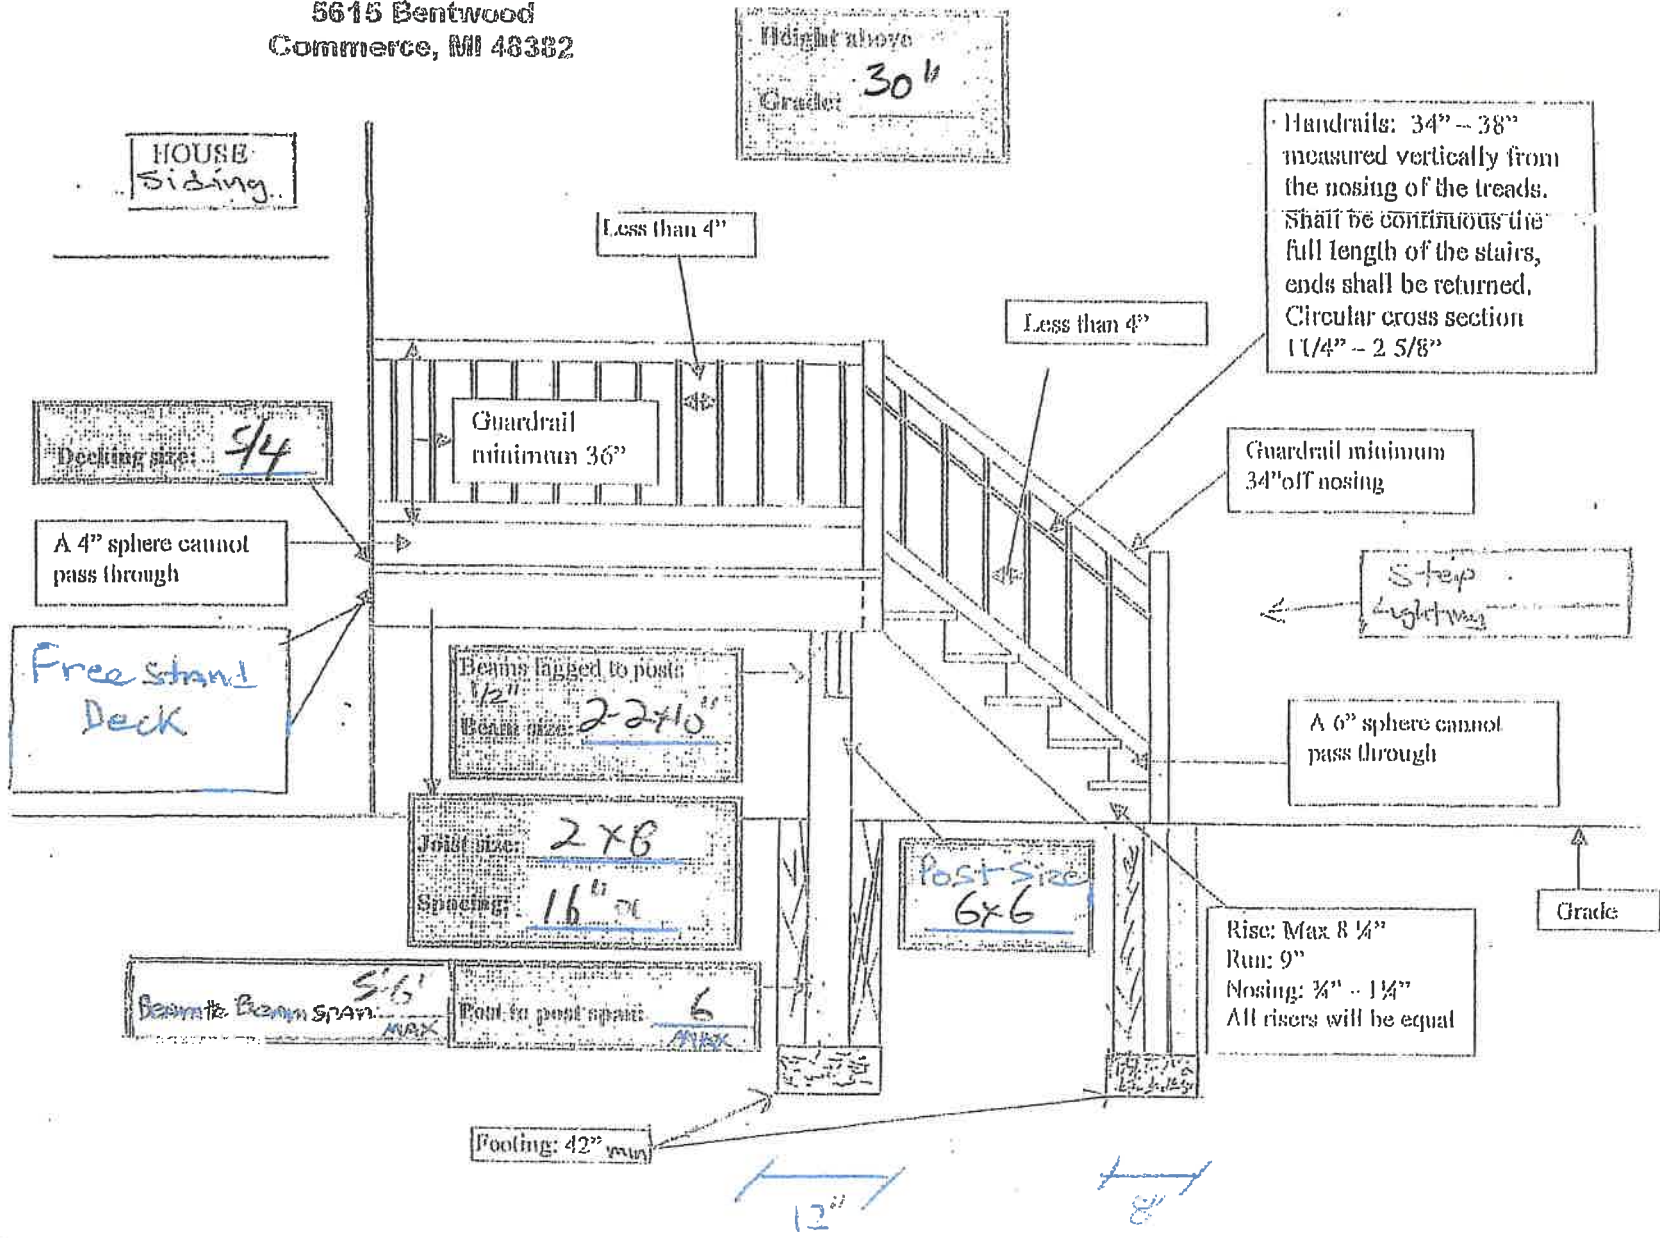 5615 Bentwood
Commerce, MI 48382
Height above
Grade: 30"
HOUSE
Siding
Less than 4"
Handrails: 34" – 38"
measured vertically from
the nosing of the treads.
Shall be continuous the
full length of the stairs,
ends shall be returned.
Circular cross section
1 1/4" – 2 5/8"
Less than 4"
Guardrail
minimum 36"
Decking size: 5/4
Guardrail minimum
34"off nosing
A 4" sphere cannot
pass through
Step
Lighting
Free stand
Deck
Beams lagged to posts
1/2"
Beam size: 2-2x10"
A 6" sphere cannot
pass through
Joist size: 2x8
Spacing: 16" oc
Post Size
6x6
Grade
Rise: Max 8 ¼"
Run: 9"
Nosing: ¾" - 1¼"
All risers will be equal
Beam to Beam SPAN: 5'-6'
MAX
Post to post span: 6
MAX
Footing: 42" min
12"
8"